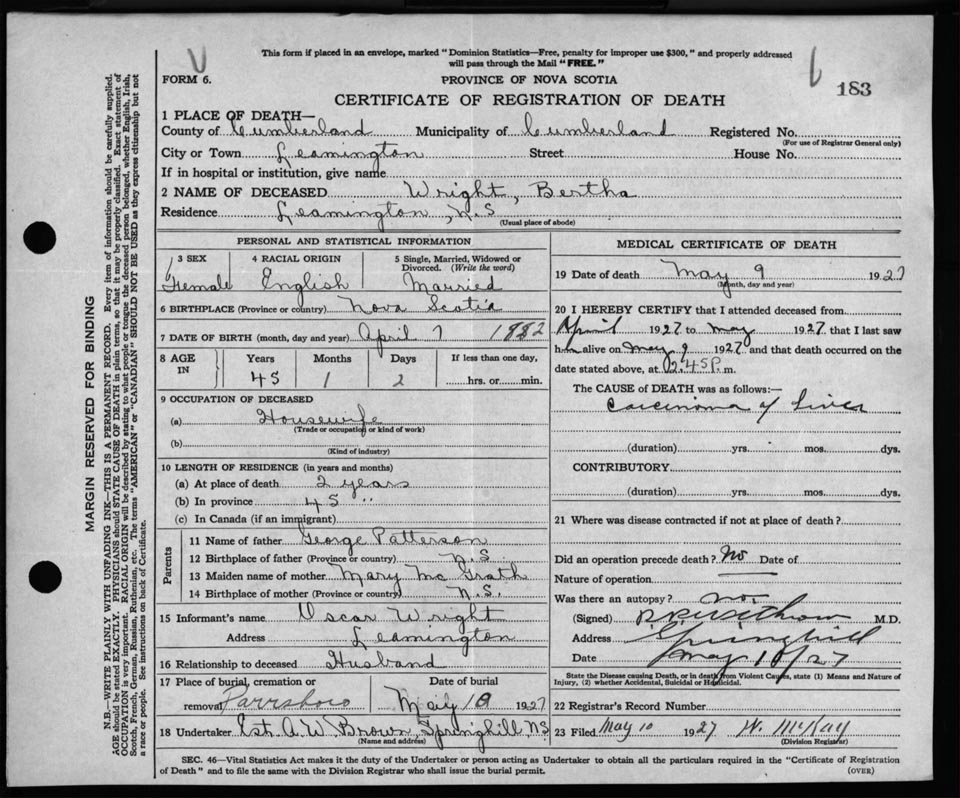 This form if placed in an envelope, marked "Dominion Statistics—Free, penalty for improper use $300," and properly addressed
will pass through the Mail "FREE."
FORM 6.
PROVINCE OF NOVA SCOTIA
183
CERTIFICATE OF REGISTRATION OF DEATH
1 PLACE OF DEATH—
County of Cumberland Municipality of Cumberland Registered No.
(For use of Registrar General only)
City or Town Leamington Street House No.
If in hospital or institution, give name
2 NAME OF DECEASED Wright, Bertha
Residence Leamington, N.S
(Usual place of abode)
PERSONAL AND STATISTICAL INFORMATION
3 SEX 4 RACIAL ORIGIN 5 Single, Married, Widowed or
Divorced. (Write the word)
Female English Married
6 BIRTHPLACE (Province or country) Nova Scotia
7 DATE OF BIRTH (month, day and year) April 7 1882
8 AGE IN Years Months Days If less than one day,
45 1 2 hrs. or min.
9 OCCUPATION OF DECEASED
(a) Housewife
(Trade or occupation or kind of work)
(b)
(Kind of industry)
10 LENGTH OF RESIDENCE (in years and months)
(a) At place of death 2 years
(b) In province 45 "
(c) In Canada (if an immigrant)
Parents
11 Name of father George Patterson
12 Birthplace of father (Province or country) N.S.
13 Maiden name of mother Mary McGrath
14 Birthplace of mother (Province or country) N.S.
15 Informant's name Oscar Wright
Address Leamington
16 Relationship to deceased Husband
17 Place of burial, cremation or Date of burial
removal Parrsboro May 10 1927
18 Undertaker Est. A.W Brown, Springhill NS
(Name and address)
MEDICAL CERTIFICATE OF DEATH
19 Date of death May 9 1927
(Month, day and year)
20 I HEREBY CERTIFY that I attended deceased from
April 1927 to May 1927 that I last saw
h alive on May 9 1927 and that death occurred on the
date stated above, at 2.45 P. m.
The CAUSE of DEATH was as follows:—
Carcinoma of Liver
(duration) yrs. mos. dys.
CONTRIBUTORY
(duration) yrs. mos. dys.
21 Where was disease contracted if not at place of death?
Did an operation precede death? No Date of
Nature of operation
Was there an autopsy? no.
(Signed) M.D.
Address Springhill
Date May 10/27
State the Disease causing Death, or in death from Violent Causes, state (1) Means and Nature of
Injury, (2) whether Accidental, Suicidal or Homicidal.
22 Registrar's Record Number
23 Filed May 10 1927 W. McKay
(Division Registrar)
SEC. 46—Vital Statistics Act makes it the duty of the Undertaker or person acting as Undertaker to obtain all the particulars required in the "Certificate of Registration
of Death" and to file the same with the Division Registrar who shall issue the burial permit.
(OVER)
MARGIN RESERVED FOR BINDING
N.B.—WRITE PLAINLY WITH UNFADING INK—THIS IS A PERMANENT RECORD. Every item of information should be carefully supplied.
AGE should be stated EXACTLY. PHYSICIANS should STATE CAUSE OF DEATH in plain terms, so that it may be properly classified. Exact statement of
OCCUPATION is very important. RACIAL ORIGIN will be described by stating to what people or tongue the deceased person belonged, whether English, Irish,
Scotch, French, German, Russian, Ruthenian, etc. The terms "AMERICAN" or "CANADIAN" SHOULD NOT BE USED as they express citizenship but not
a race or people. See instructions on back of Certificate.